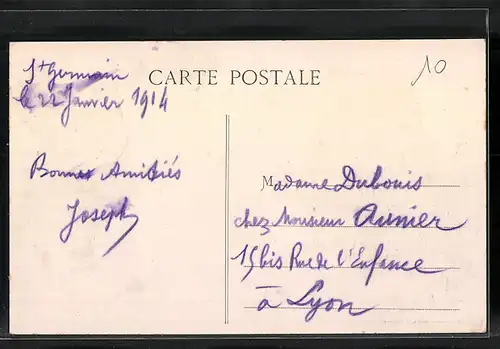 St Germain
le 22 Janvier 1914
CARTE POSTALE
10
Bonnes Amitiés
Joseph
Madame Dubouis
chez Monsieur Aunier
15 bis Rue de l'Enfance
à Lyon